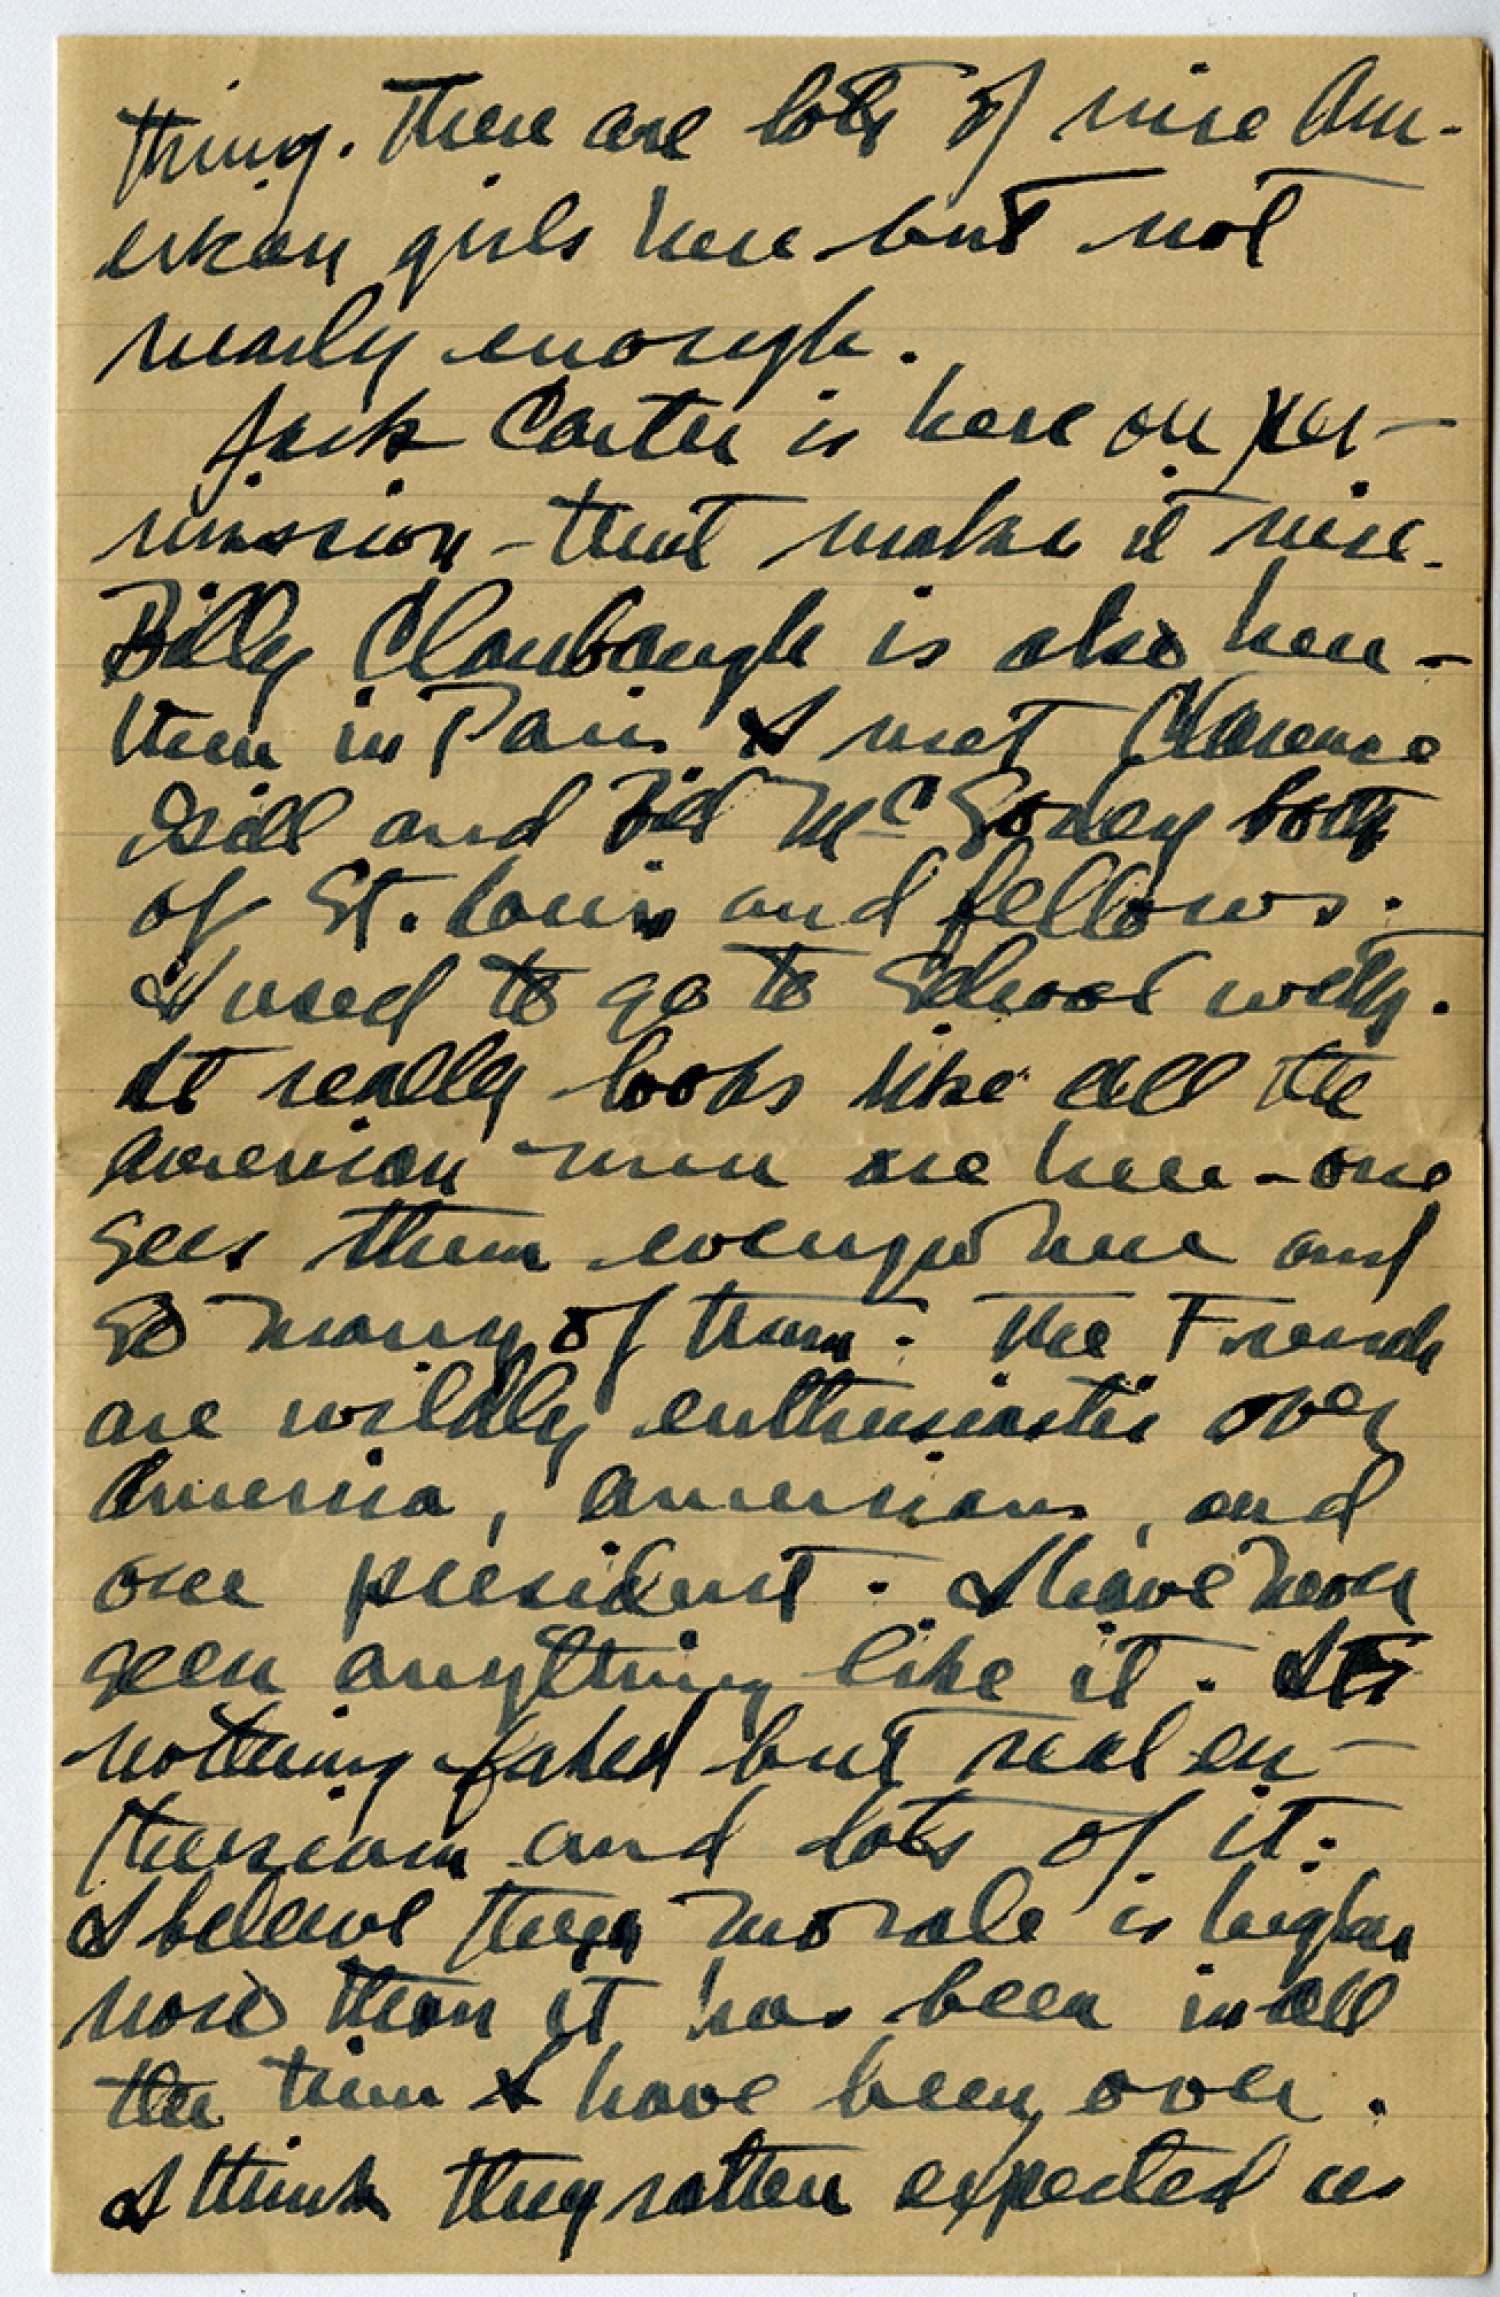 thing. There are lots of nice Am-
erican girls here but not
nearly enough.
Jack Carter is here on per-
mission - that makes it nice.
Billy Clanbaugh is also here -
then in Paris I met Clarence
Gill and McGodey both
of St. Louis and fellows.
I used to go to School with.
It really looks like all the
American men are here - one
sees them everywhere and
so many of them. The French
are wildly enthusiastic over
America, Americans, and
our president. I have never
seen anything like it. Its
nothing faked but real en-
thusiasm and lots of it.
I believe their morale is higher
now than it has been in all
the time I have been over.
I think they rather expected us